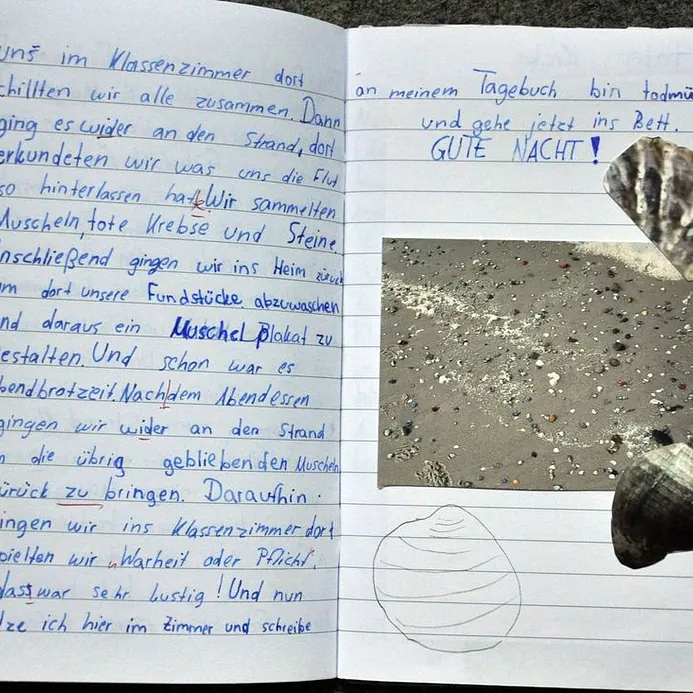 uns im Klassenzimmer dort
chillten wir alle zusammen. Dann
ging es wider an den Strand, dort
erkundeten wir was uns die Flut
so hinterlassen hat. Wir sammelten
Muscheln, tote Krebse und Steine.
nschließend gingen wir ins Heim zurück
m dort unsere Fundstücke abzuwaschen
nd daraus ein Muschel plakat zu
estalten. Und schon war es
bendbrotzeit. Nach|dem Abendessen
gingen wir wider an den Strand
m die übrig gebliebenden Muscheln
urück zu bringen. Daraufhin
ingen wir ins Klassenzimmer dort
pielten wir „Warheit oder Pflicht".
dass war sehr lustig! Und nun
tze ich hier im Zimmer und schreibe
an meinem Tagebuch bin todmü
und gehe jetzt ins Bett.
GUTE NACHT!